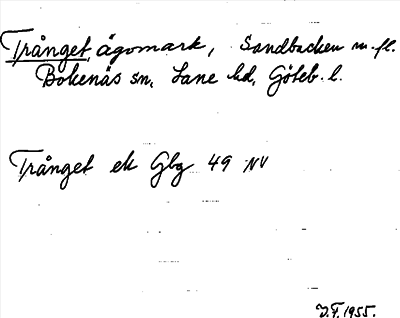 Trånget, ägomark, Sandbacken m.fl.
Bokenäs sn, Lane hd, Göteb. l.
Trånget ek Gbg 49 NV
J.F. 1955.